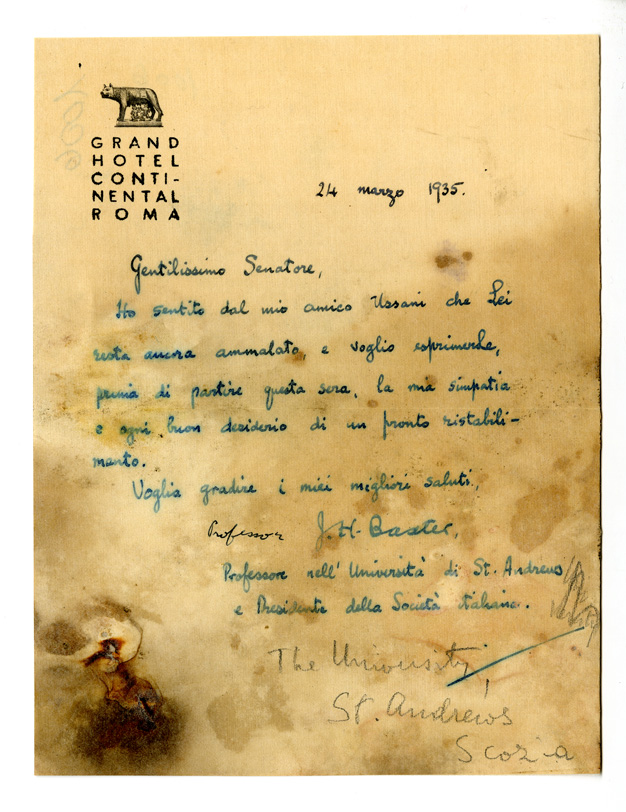 GRAND
HOTEL
CONTI-
NENTAL
ROMA
24 marzo 1935.
Gentilissimo Senatore,
Ho sentito dal mio amico Ussani che Lei
resta ancora ammalato, e voglio esprimerLe,
prima di partire questa sera, la mia simpatia
e ogni buon desiderio di un pronto ristabili-
mento.
Voglia gradire i miei migliori saluti,
Professor J. H. Baxter,
Professore nell' Università di St. Andrews
e Presidente della Società italiana.
The University,
St. Andrews
Scozia